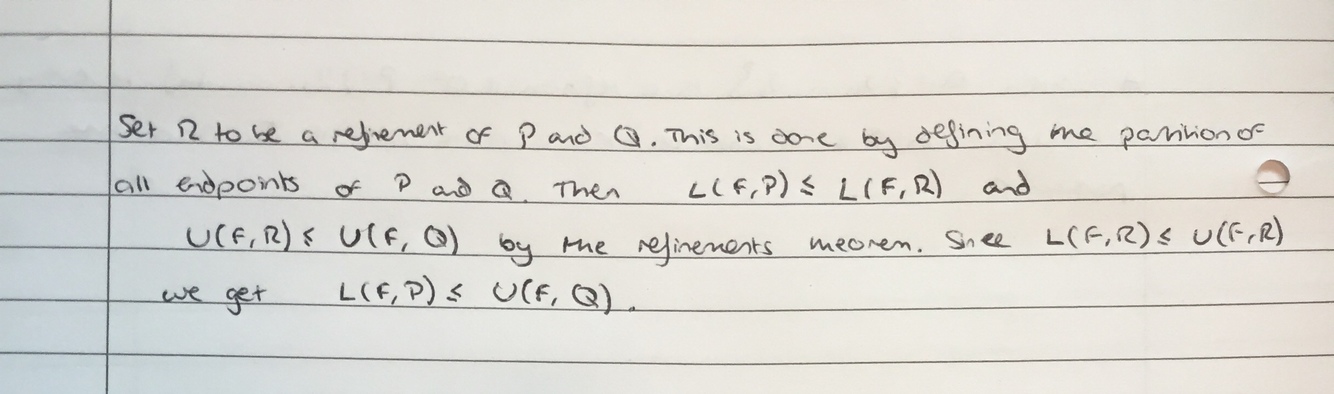 Set R to be a refinement of P and Q. This is done by defining the partition of
all endpoints of P and Q. Then L(F,P) ≤ L(F,R) and
U(F,R) ≤ U(F,Q) by the refinements theorem. Since L(F,R) ≤ U(F,R)
we get L(F,P) ≤ U(F,Q).